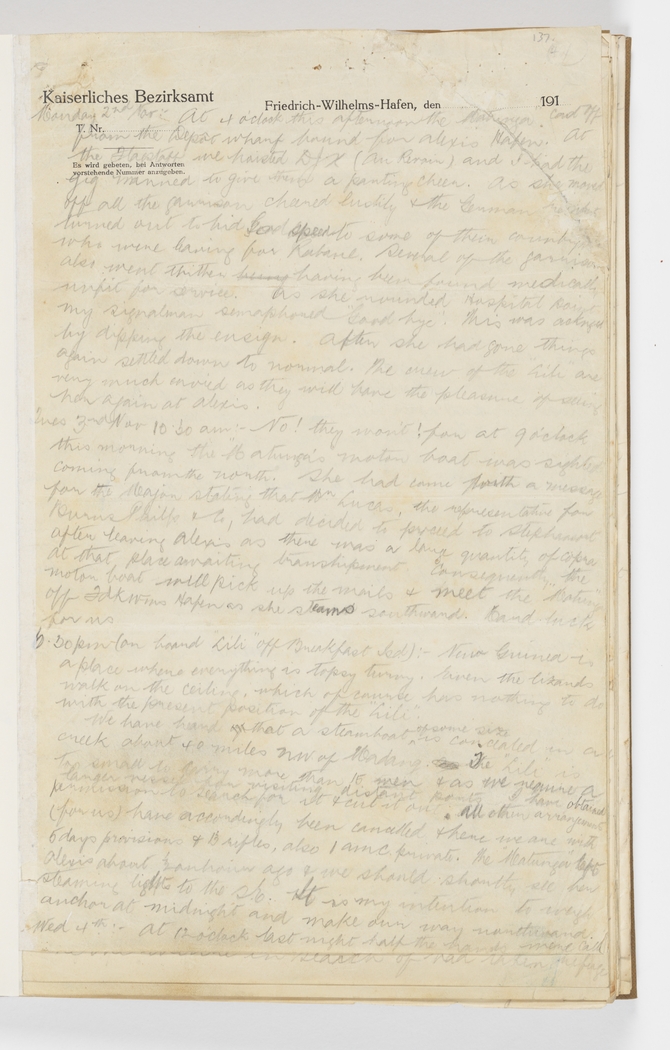 137.
Kaiserliches Bezirksamt
Friedrich-Wilhelms-Hafen, den 191
T. Nr.
Es wird gebeten, bei Antworten
vorstehende Nummer anzugeben.
Monday 2nd Nov:- At 4 o'clock this afternoon the Matunga cast off
from the Depot wharf bound for Alexis Hafen. At
the Flagstaff we hoisted D.J.X (Au Revoir) and I had the
gig manned to give a parting cheer. As she moved
off all the garrison cheered lustily & the German
turned out to bid God speed to some of their countrymen
who were leaving for Rabaul. Several of the garrison
also went thither being having been found medically
unfit for service. As she rounded Hospital Point
my signalman semaphored "Good bye". This was acknged
by dipping the ensign. After she had gone things
again settled down to normal. The crew of the Lili are
very much envied as they will have the pleasure of seeing
her again at Alexis.
Tues 3rd Nov 10.30 am:- No! they won't! for at 9 o'clock
this morning the Matunga's motor boat was sighted
coming from the north. She had come with a message
for the Major stating that Mr Lucas, the representative for
Burns Philp & Co, had decided to proceed to Stephansort
after leaving Alexis as there was a large quantity of copra
at that place awaiting transhipment. Consequently the
motor boat will pick up the mails & meet the Matunga
off Fdk Wms Hafen as she steams southwards. Hard luck
for us
6.30pm (on board "Lili" off Breakfast Isd):- New Guinea is
a place where everything is topsy turvy. Even the lizards
walk on the ceiling, which of course has nothing to do
with the present position of the "Lili".
We have heard that a steamboat of some size is concealed in a
creek about 40 miles NW of Madang. The "Lili" is
too small to carry more than 15 men & as we require a
larger vessel when visiting distant points I have obtained
permission to search for it & cut it out. All other arrangements
(for us) have accordingly been cancelled & here we are with
6 days provisions & 8 rifles, also 1 amc. private. The Matunga left
Alexis about hours ago & we should shortly see her
steaming lights to the SE. It is my intention to weigh
anchor at midnight and make our way northward.
Wed 4th:- At 12 o'clock last night half the hands were
in search of